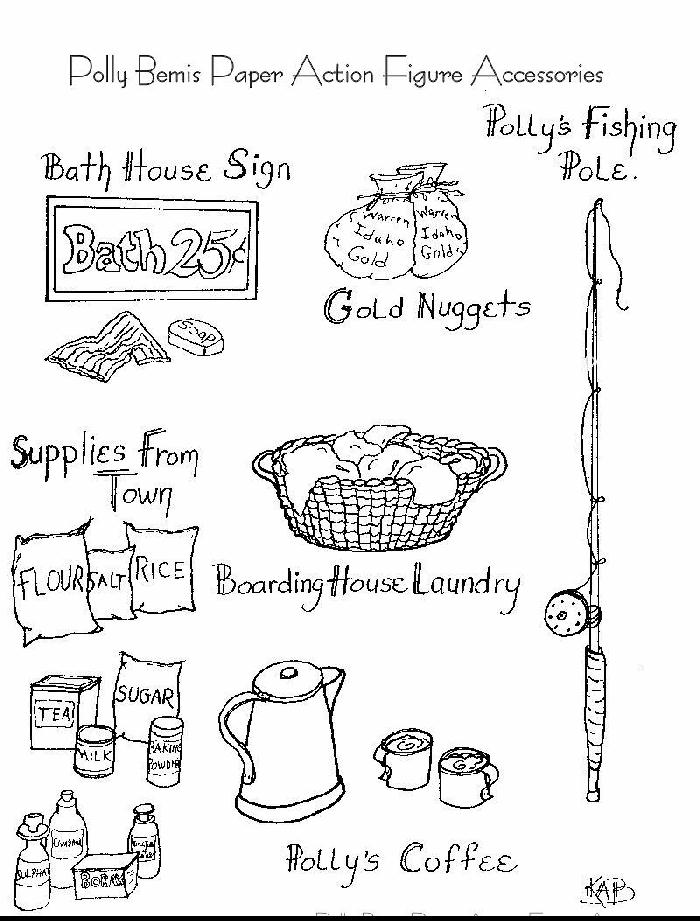 Polly Bemis Paper Action Figure Accessories
Polly's Fishing
Pole.
Bath House Sign
Bath 25¢
Soap
Warren
Idaho
Gold
Warren
Idaho
Gold
Gold Nuggets
Supplies From
Town
FLOUR
SALT
RICE
Boarding House Laundry
TEA
SUGAR
MILK
BAKING
POWDER
Polly's Coffee
KAP